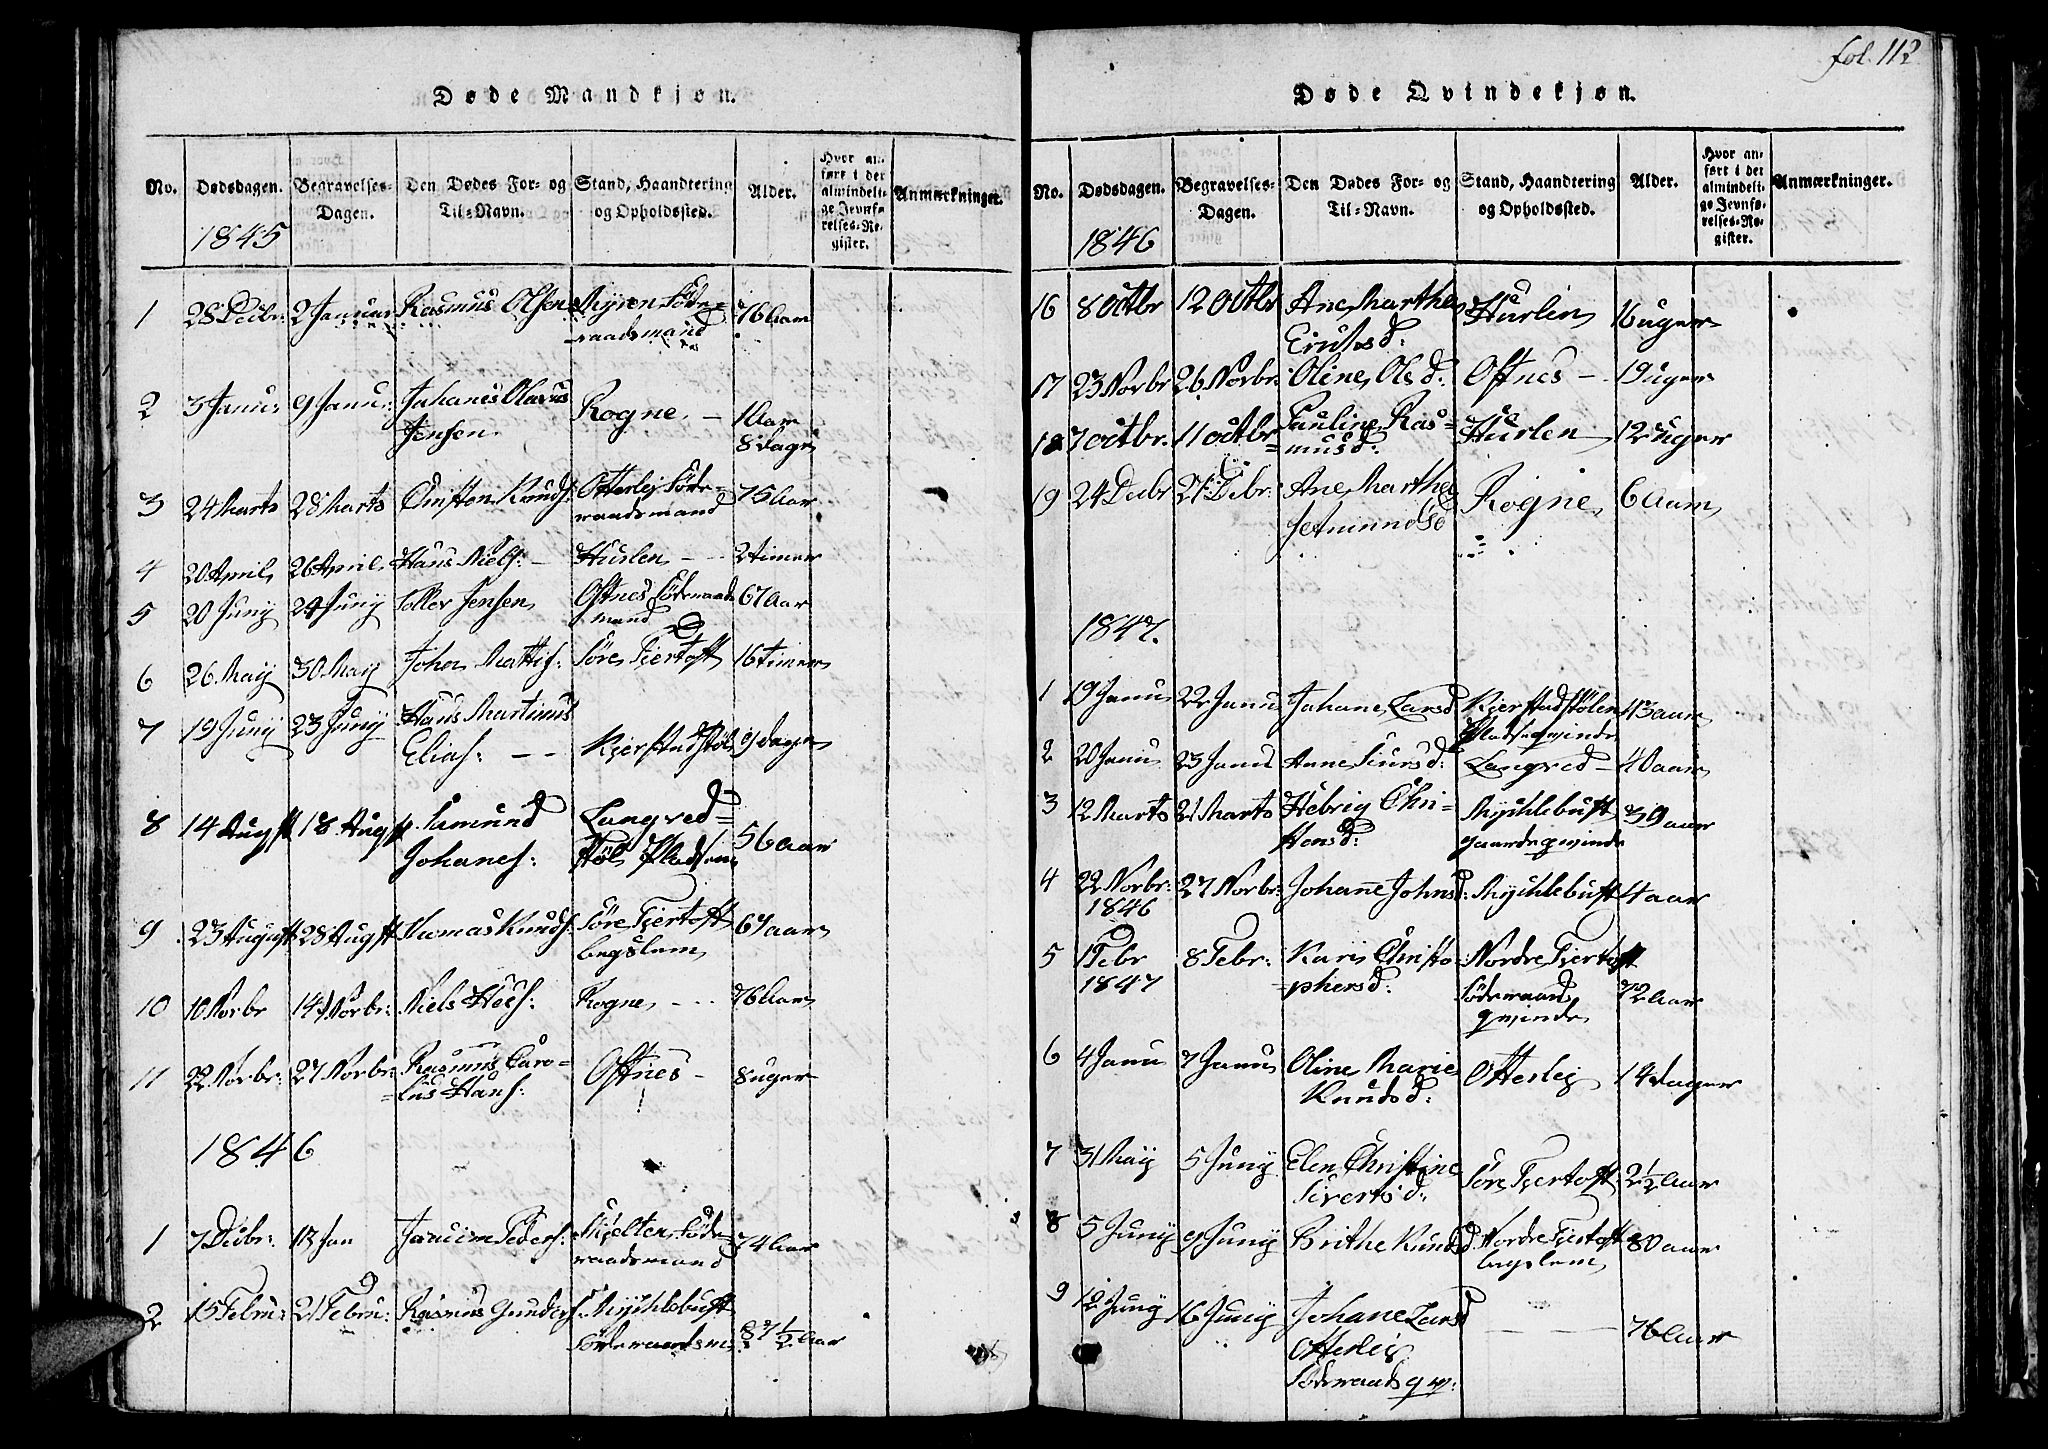 fol. 112
Døde Mandkjøn.
No. Dødsdagen. Begravelses-Dagen. Den Dødes For- og Til-Navn. Stand, Haandtering og Opholdssted. Alder. Hvor anført i det almindelige Jevnførelses-Register. Anmærkninger.
1845
1 28 Decbr: 2 Januar Rasmus Olsen Myren Föde-
raadsmand 76 Aar
2 3 Janu: 9 Janu: Johanes Olavus
Jensen Rogne - 1 Aar
8 Dage
3 24 Marts 28 Marts Christen Knuds: Otterlej Föde-
raadsmand 75 Aar
4 20 April 26 April Hans Niels: - Hurlen - - 2 timer
5 20 Junÿ 24 Junÿ Toller Jensen Oftnes Föderaads
mand 67 Aar
6 26 Maÿ 30 Maÿ Johan Mattis: Söre Fjertoft 16 timer
7 19 Junÿ 23 Junÿ Hans Martinus
Elias: - - Kjerstadstöl 9 dage
8 14 Augst 18 Augst Aamund
Johanes: Langved-
stöl Pladsem 56 Aar
9 23 August 28 Augst Thomas Knuds: Söre Fjertoft
legslem 67 aar
10 10 Novbr 14 Novbr: Niels Hoes: Rogne - - - 76 Aar
11 22 Novbr: 27 Novbr: Rasmus Caro-
lus Hans: Oftnes - 8 uger
1846
1 7 Decbr: 13 Jan Joacim Peders: Mjelten Föde-
raadsmand 74 Aar
2 15 Febru: 21 Febru: Rasmus Gunders: Myklebust
Föderaadsm 87½ Aar
Døde Qvindekjøn.
No. Dødsdagen. Begravelses-Dagen. Den Dødes For- og Til-Navn. Stand, Haandtering og Opholdssted. Alder. Hvor anført i det almindelige Jevnførelses-Register. Anmærkninger.
1846
16 8 Octbr 12 Octbr Ane Marthe
d: Hurlen 16 uger
17 23 Novbr 26 Novbr: Oline Olsd: Oftnes - 19 uger
18 7 Octbr. 11 Octbr Pauline Ras-
musd: Hurlen 12 uger
19 24 Decbr 27 Debr: Ane Marthe
Rogne 6 Aar
1847.
1 19 Janu 22 Janu Johane Larsd Kjerstadstölen
Pladseqvinde 43 aar
2 20 Janu 23 Janu Anne Siursd: Langved - 40 aar
3 12 Marts 21 Marts Hebrig Chri-
stensd: Mÿchlebust
gaardeqvinde 39 aar
4 22 Novbr:
1846 27 Novbr: Johanne Johnsd: Mÿchlebust 4 aar
5 1 Febr
1847 8 Febr: Kari Christo
-phersd: Nordre Fjertoft
Föderaads
qvinde 72 Aar
6 4 Janu 7 Janu Oline Marie
Knudsd: Otterlej 14 dager
7 31 Maÿ 5 Junÿ Elen Christine
Sivertsd: Söre Fjertoft 2½ Aar
8 5 Junÿ 9 Junÿ Brithe Knudsd: Nordre Fjertoft
legslem 80 aar
9 12 Junÿ 16 Junÿ Johane Larsd
Otterlej
Föderaadsqv: - - 76 Aar